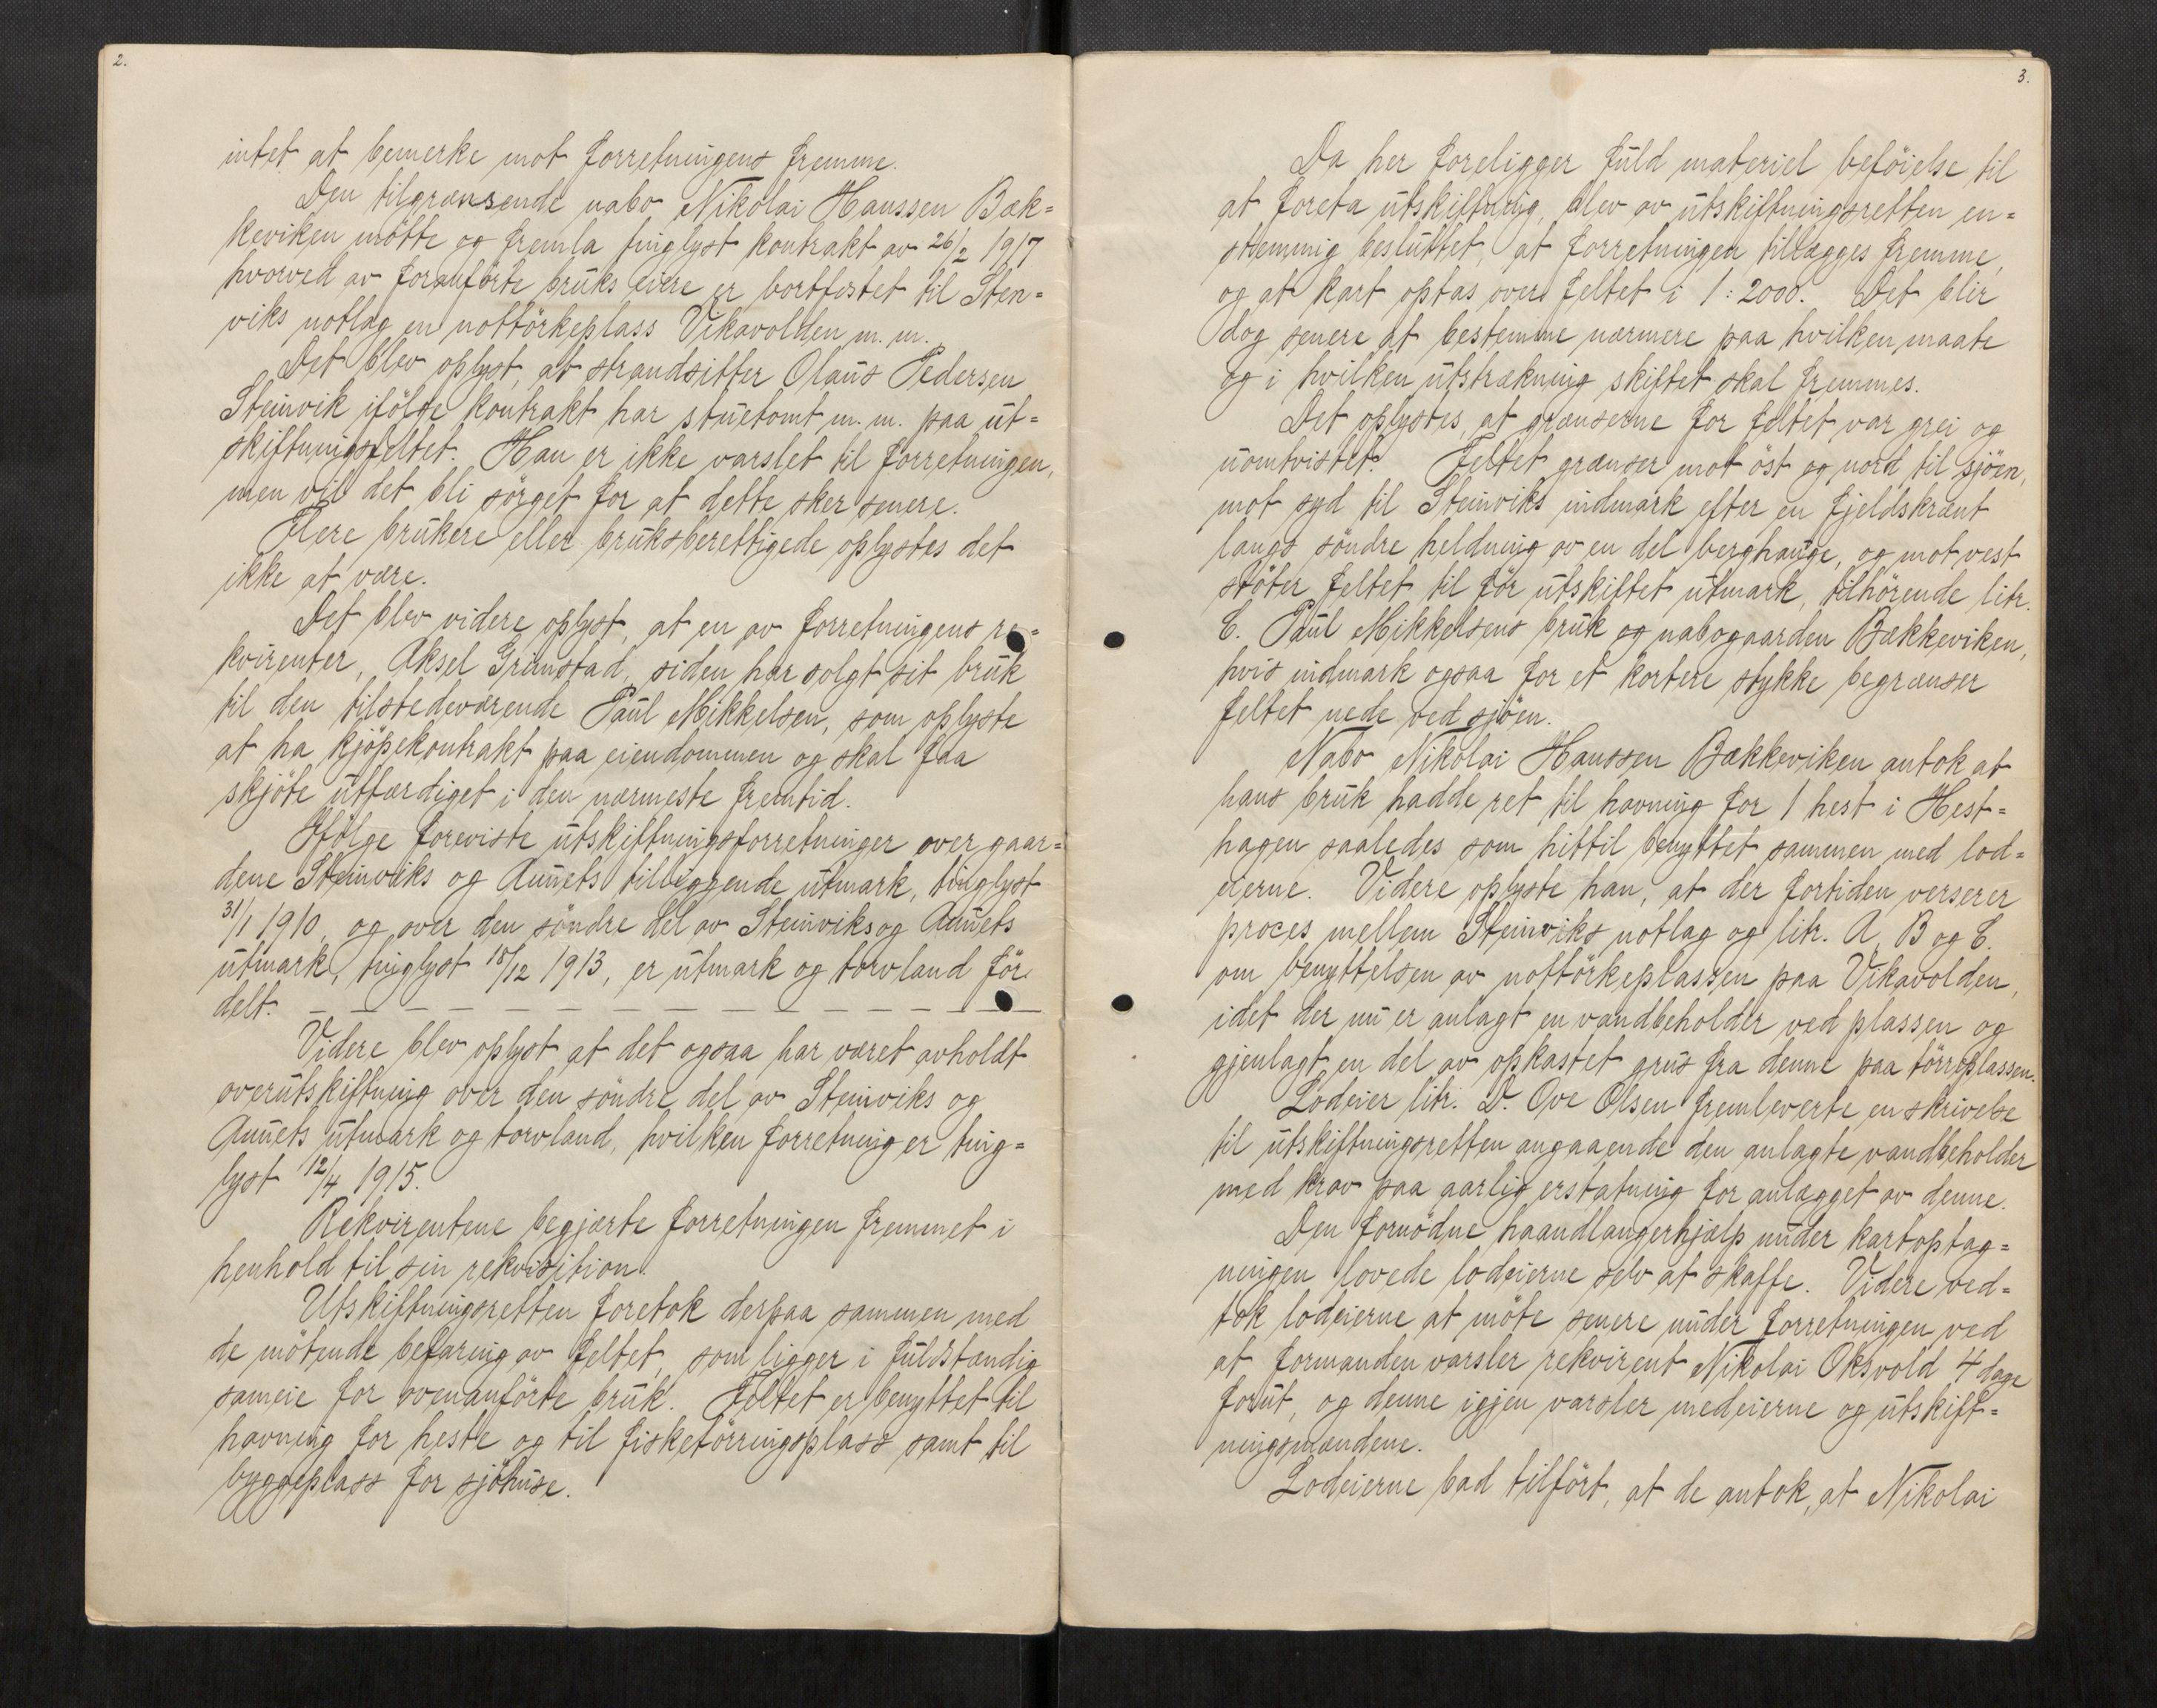 2.
intet at bemerke mot forretningens fremme.
Den tilgrænsende nabo Nikolai Hanssen Bæk=
keviken mötte og fremla tinglyst kontrakt av 26/2 1917
hvorved av foranförte bruks eiere er bortfestet til Sten=
viks notlag en nottörkeplass Vikavolden m. m.
Det blev oplyst, at strandsitter Olaus Pedersen
Steinvik ifölge kontrakt har stuetomt m. m. paa ut=
skiftningsfeltet. Han er ikke varslet til forretningen,
men vil det bli sörget for at dette sker senere.
Flere brukere eller bruksberettigede oplystes det
ikke at være.
Det blev videre oplyst, at en av forretningens re=
kvirenter, Aksel Grimstad, siden har solgt sit bruk
til den tilstedeværende Paul Mikkelsen, som oplyste
at ha kjöpekontrakt paa eiendommen og skal faa
skjöte utfærdiget i den nærmeste fremtid.
Ifölge foreviste utskiftningsforretninger over gaar=
dene Steinviks og Aunets tilliggende utmark, tinglyst
31/1 1910, og over den söndre del av Steinviks og Aunets
utmark, tinglyst 15/12 1913, er utmark og torvland för
delt. — — — — — — — — — — — — — —
Videre blev oplyst at det ogsaa har været avholdt
overutskiftning over den söndre del av Steinviks og
Aunets utmark og torvland, hvilken forretning er ting=
lyst 12/4 1915.
Rekvirentene begjærte forretningen fremmet i
henhold til sin rekvisition.
Utskiftningsretten foretok derpaa sammen med
de mötende befaring av feltet, som ligger i fuldstændig
sameie for ovenanförte bruk. Feltet er benyttet til
havning for heste og til fisketörringsplass samt til
byggeplass for sjöhuse.
3.
Da her foreligger fuld materiel beföielse til
at foreta utskiftning, blev av utskiftningsretten en=
stemmig besluttet, at forretningen tillægges fremme,
og at kart optas over feltet i 1 : 2000. Det blir
dog senere at bestemme nærmere paa hvilken maate
og i hvilken utstrækning skiftet skal fremmes.
Det oplystes, at grænserne for feltet var grei og
uomtvistet. Feltet grænser mot öst og nord til sjöen,
mot syd til Steinviks indmark efter en fjeldskrent
langs söndre heldning av en del berghauge, og mot vest
stöter feltet til för utskiftet utmark, tilhörende litr.
C. Paul Mikkelsens bruk og nabogaarden Bækkeviken,
hvis indmark ogsaa for et kortere stykke begrænser
feltet nede ved sjöen.
Nabo Nikolai Hanssen Bækkeviken antok at
hans bruk hadde ret til havning for 1 hest i Hest=
hagen saaledes som hittil benyttet sammen med lod=
eierne. Videre oplyste han, at der fortiden verserer
proces mellem Steinviks notlag og litr. A, B og C.
om benyttelsen av nottörkeplassen paa Vikavolden,
idet der nu er anlagt en vandbeholder ved plassen og
gjenlagt en del av opkastet grus fra denne paa törreplassen.
Lodeier litr. D. Ove Olsen fremleverte en skrivelse
til utskiftningsretten angaaende den anlagte vandbeholder
med krav paa aarlig erstatning for anlægget av denne.
Den fornödne haandlangerhjælp under kartoptag=
ningen lovede lodeierne selv at skaffe. Videre ved=
tok lodeierne at möte senere under forretningen ved
at formanden varsler rekvirent Nikolai Oksvold 4 dage
forut, og denne igjen varsler medeierne og utskift=
ningsmændene.
Lodeierne bad tilfört, at de antok, at Nikolai